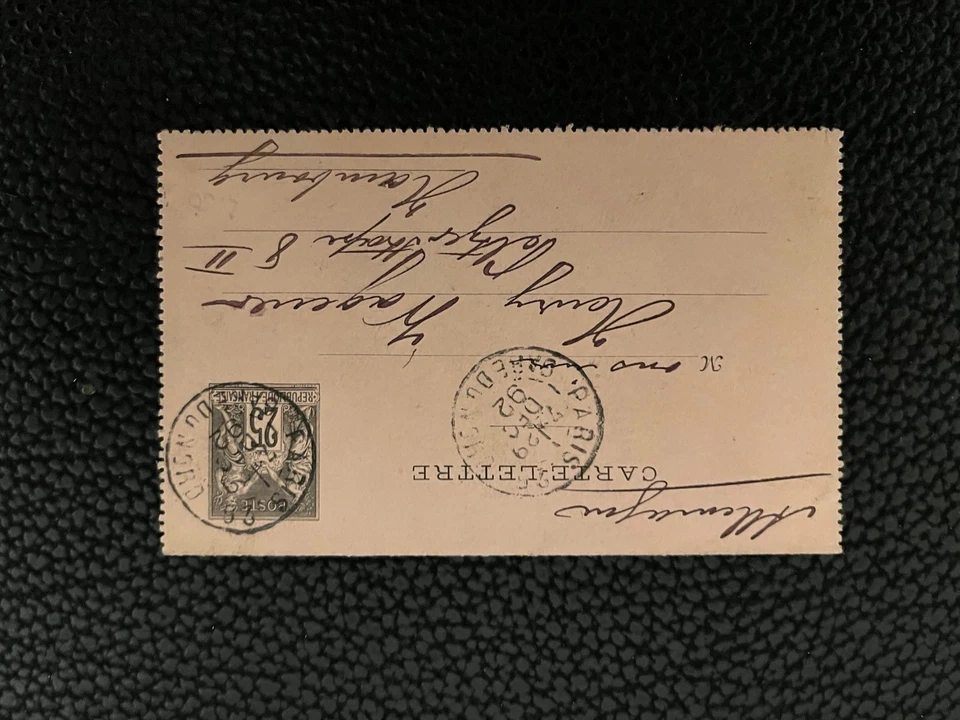 Allemagne
CARTE-LETTRE
POSTES
25
REPUBLIQUE FRANÇAISE
PARIS
29
DEC
92
GARE DU NORD
Monsieur
Henry Wagener
8 II
Hambourg